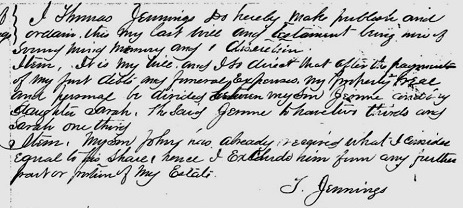 I Thomas Jennings do hereby make publish and
ordain this my last will and testament being now of
sound mind memory and discretion
Item, It is my will and I do direct that after the payment
of my just debts and funeral expenses my Property Real
and personal be divided between my son Jemme and my
daughter Sarah. The said Jemme to have two thirds and
Sarah one third
Item. My son John, has already received what I consider
Equal to his share, hence I Exclude him from any further
part or portion of My Estate.
T. Jennings